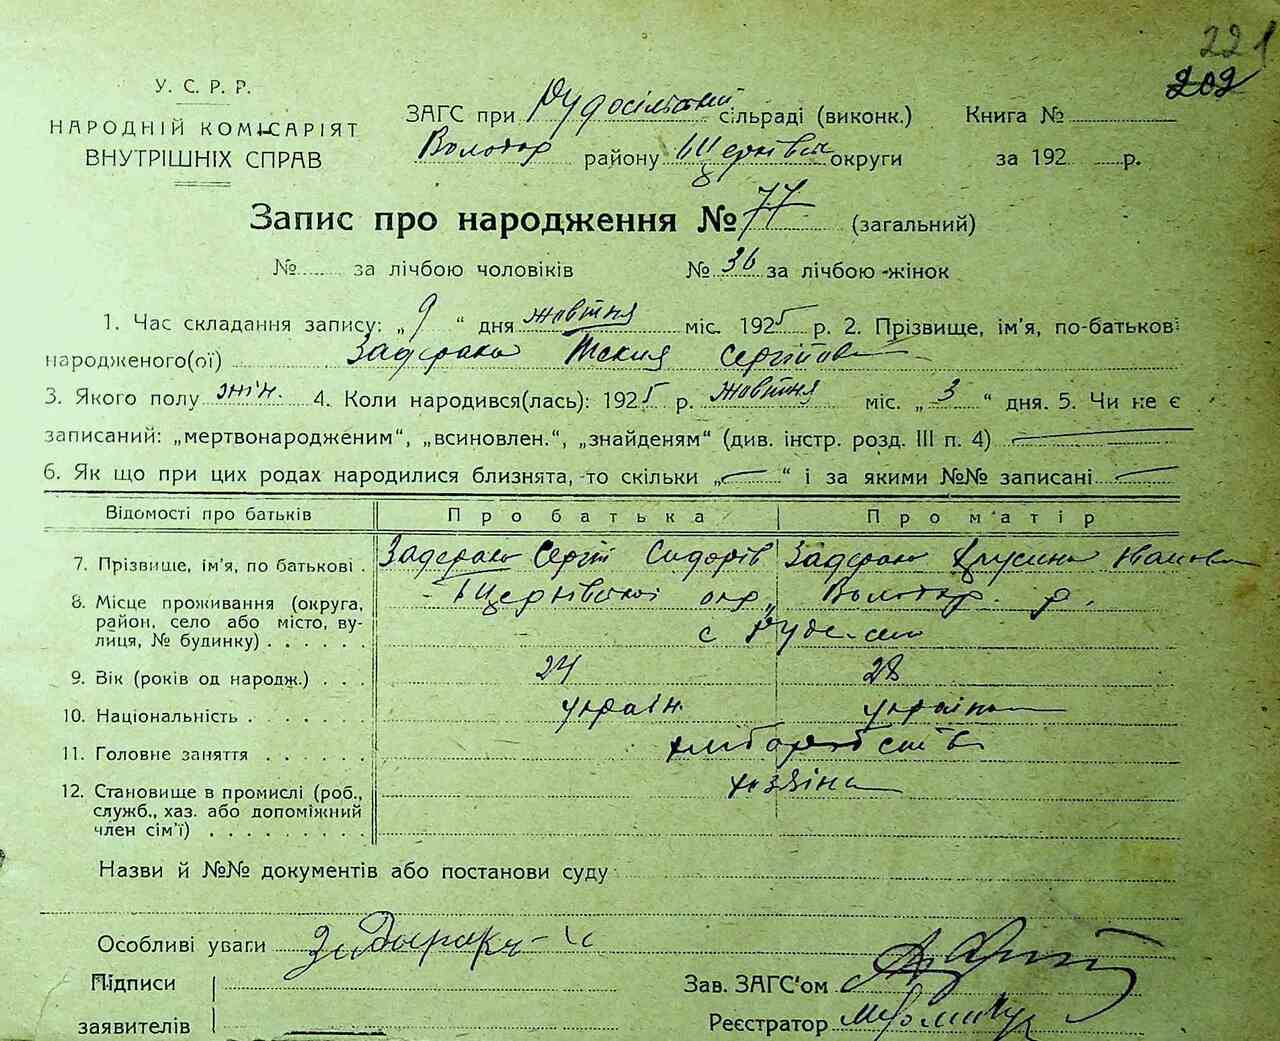 221
202
У. С. Р. Р.
НАРОДНІЙ КОМІСАРІЯТ
ВНУТРІШНІХ СПРАВ
ЗАГС при Рудосільській сільраді (виконк.) Книга №
Володар району Бцерківськ округи за 192 р.
Запис про народження № 77 (загальний)
№ за лічбою чоловіків № 36 за лічбою жінок
1. Час складання запису: „ 9 “ дня жовтня міс. 1925 р. 2. Прізвище, ім'я, по-батькові
народженого(ої) Задерака Сергіївна
3. Якого полу жін. 4. Коли народився(лась): 1925 р. жовтня міс. „ 3 “ дня. 5. Чи не є
записаний: „мертвонародженим“, „всиновлен.“, „знайденям“ (див. інстр. розд. III п. 4)
6. Як що при цих родах народилися близнята, -то скільки „ “ і за якими №№ записані
Відомості про батьків Про батька Про матір
7. Прізвище, ім'я, по батькові . Задерака Сергій Сидорів Задерака Іванов
8. Місце проживання (округа, район, село або місто, вулиця, № будинку) Бцерківської окр, Володар. р.
с Руде-село
9. Вік (років од народж.) . . . 24 28
10. Національність . україн. українка
11. Головне заняття хліборобство
12. Становище в промислі (роб., служб., хаз. або допоміжний член сім'ї) хазяїна
Назви й №№ документів або постанови суду
Особливі уваги
Підписи
заявителів
Зав. ЗАГС'ом
Реєстратор